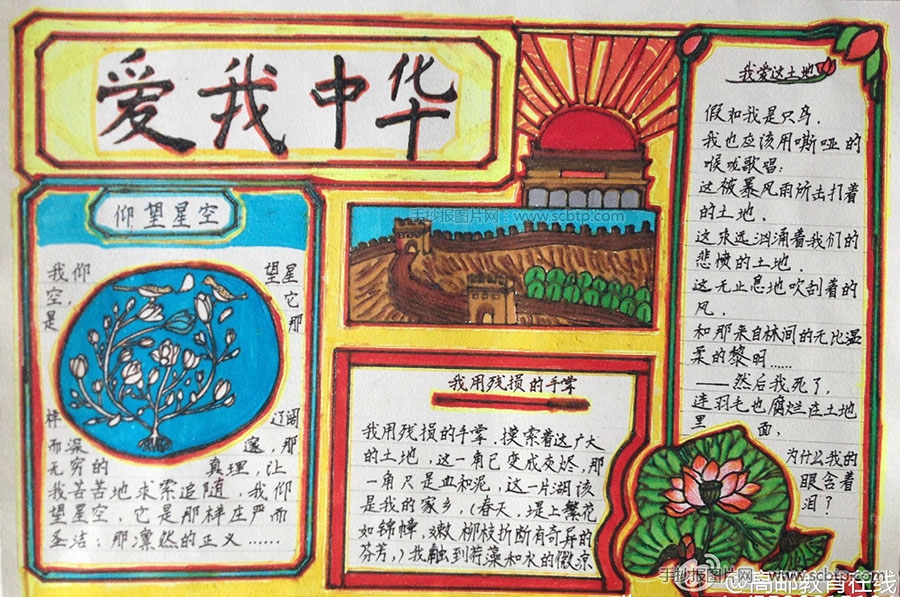 爱我中华
仰望星空
我仰 望星
空， 它
是 那
样 辽阔
而深 邃，那
无穷的 真理，让
我苦苦地求索追随，我仰
望星空，它是那样庄严而
圣洁；那凛然的正义……
手抄报图片网：www.scbtp.com
我用残损的手掌
我用残损的手掌，摸索着这广大
的土地，这一角已变成灰烬，那
一角只是血和泥，这一片湖该
是我的家乡，（春天，堤上繁花
如锦幛，嫩柳枝折断有奇异的
芬芳，）我触到荇藻和水的微凉
我爱这土地
假如我是只鸟，
我也应该用嘶哑的
喉咙歌唱：
这被暴风雨所击打着
的土地，
这永远汹涌着我们的
悲愤的土地，
这无止息地吹刮着的
风，
和那来自林间的无比温
柔的黎明……
——然后我死了，
连羽毛也腐烂在土地
里 面，
为什么我的
眼含着
泪？
手抄报图片网：www.scbtp.com
@高邮教育在线